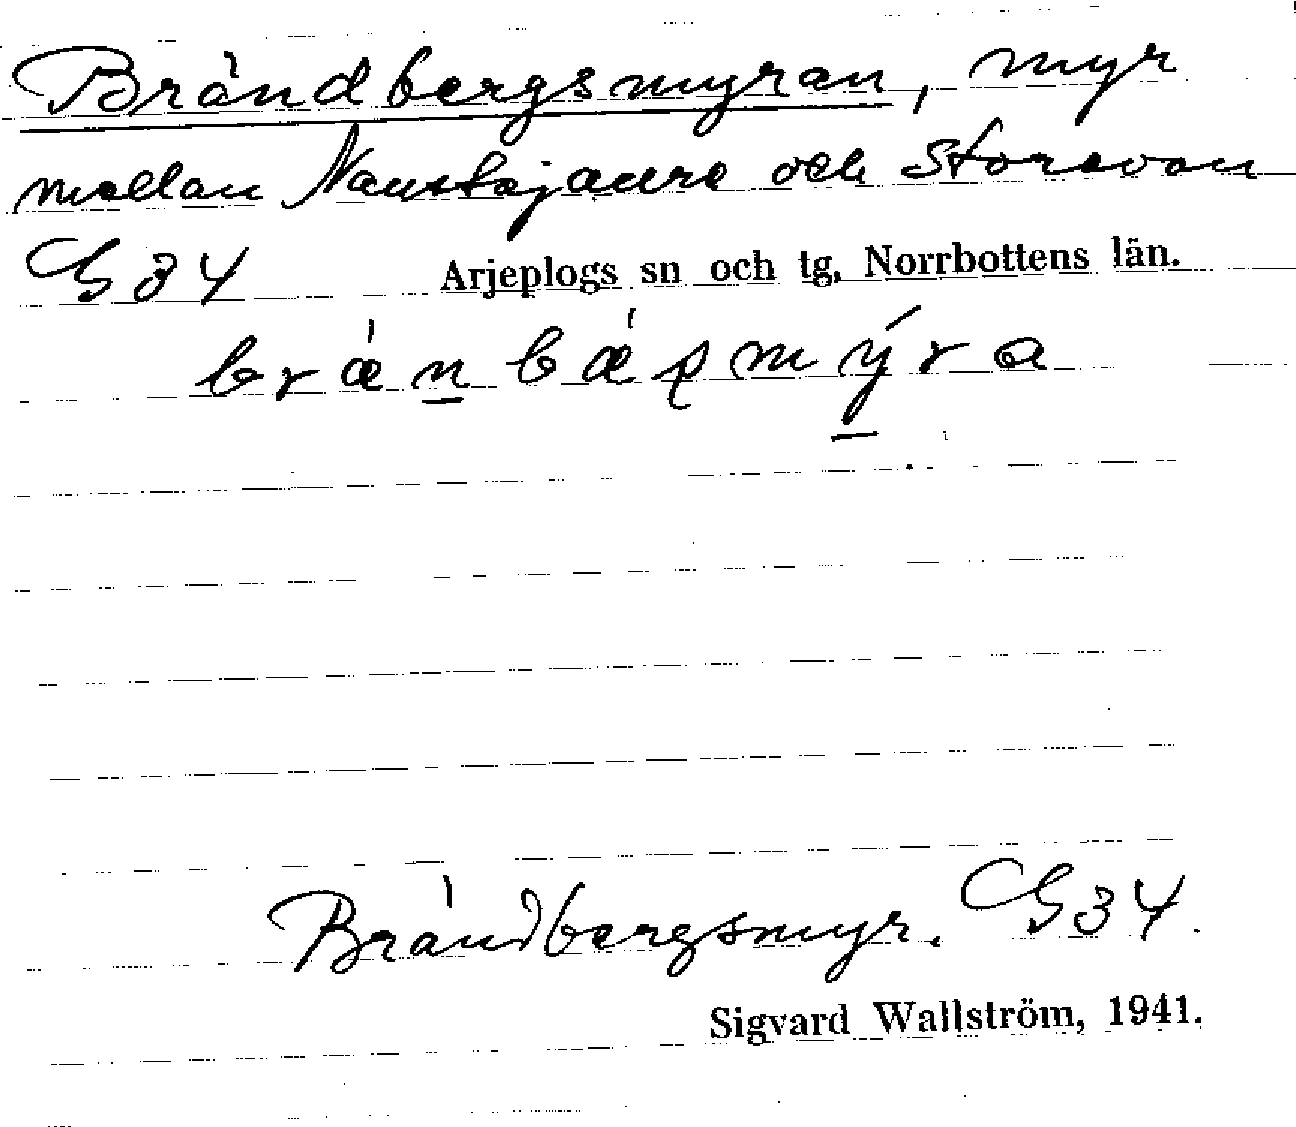 Brändbergsmyran, myr
mellan och Storavan
G34 Arjeplogs sn och tg, Norrbottens län.
Brändbergsmyr. G34.
Sigvard Wallström, 1941.